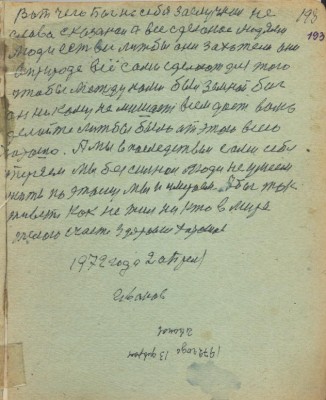 Вот чего бы ни себе заслужили не 193
слава сказана а все сделано людям 193
люди ети лижбы они захотели они
в природе всё сами сделают для того
чтобы между нами был земной бог
он никому не мешает всем дает волю
делайте лижбы было от этого всего
хорошо. А мы впоследствии сами себя
теряем мы бессильные люди не умеем
жить поэтому мы и умираем. А бы так
никто не жил на в мире
счастье здоровье хорошее
1972 года 2 апреля
Иванов
1972 года 13 февраля
Иванов